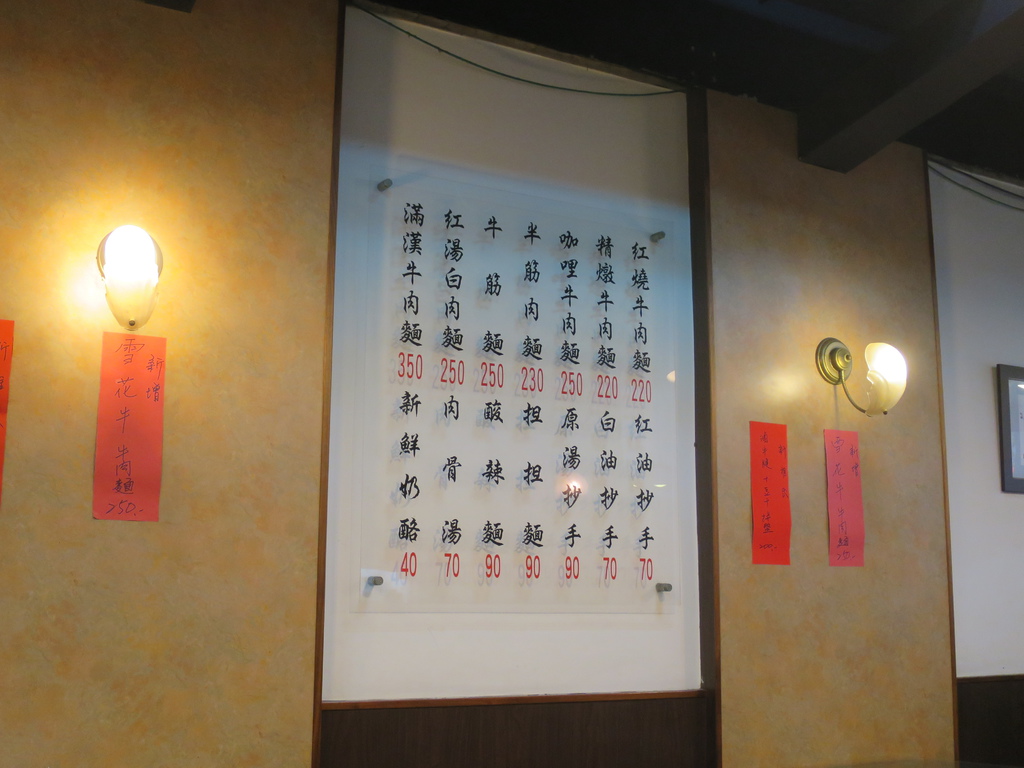 紅燒牛肉麵 220
精燉牛肉麵 220
咖哩牛肉麵 250
半筋肉麵 230
牛筋麵 250
紅湯白肉麵 250
滿漢牛肉麵 350
紅油抄手 70
白油抄手 70
原湯抄手 90
担担麵 90
酸辣麵 90
肉骨湯 70
新鮮奶酪 40
新增
雪花牛肉麵
250.-
新增
雪花牛肉麵
新